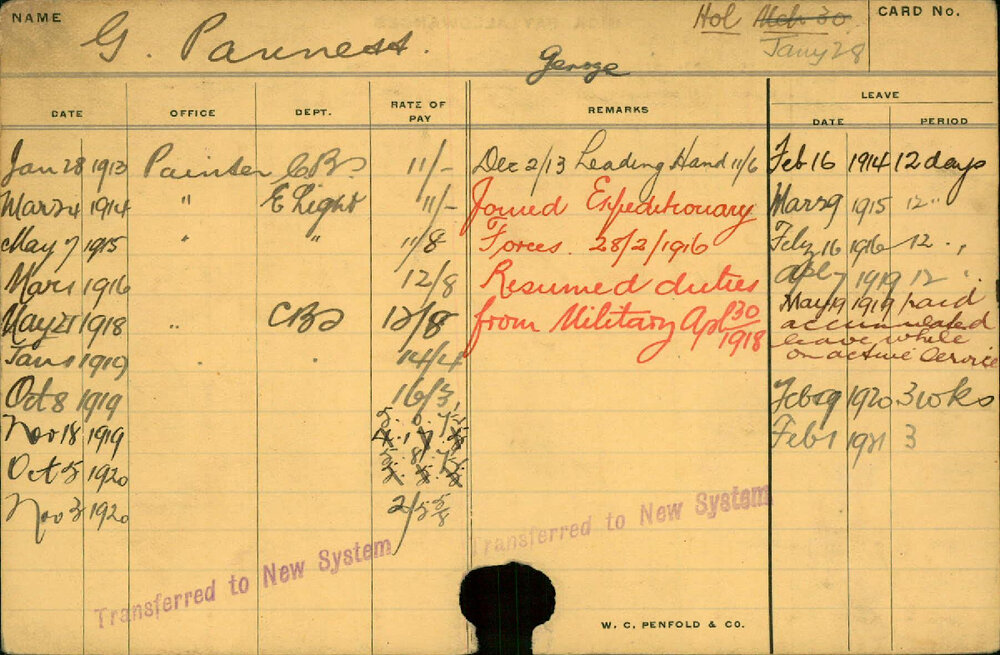 NAME
G. Pauness.
George
Hol Mch 30
Jany 28
CARD No.
DATE OFFICE DEPT. RATE OF PAY REMARKS LEAVE
DATE PERIOD
Jan 28 1913 Painter CBs 11/- Dec 2/13 Leading Hand 11/6 Feb 16 1914 12 days
Mar 24 1914 " E Light 11/- Joined Expeditionary Mar 29 1915 12 "
May 7 1915 " " 11/8 Forces. 28/2/1916 Feby 16 1916 12 "
Mar 1 1916 12/8 Resumed duties Apl 7 1919 12 "
May 21 1918 " CBs 12/8 from Military Apl 30/1918 May 19 1919 paid
accumulated
leave while
on active service
Jan 1 1919 " " 14/4
Oct 8 1919 16/3 Feb 9 1920 3 wks
Nov 18 1919 Feb 1 1921 3
Oct 5 1920
Nov 3 1920 2/5 5/8
Transferred to New System
Transferred to New System
W. C. PENFOLD & CO.